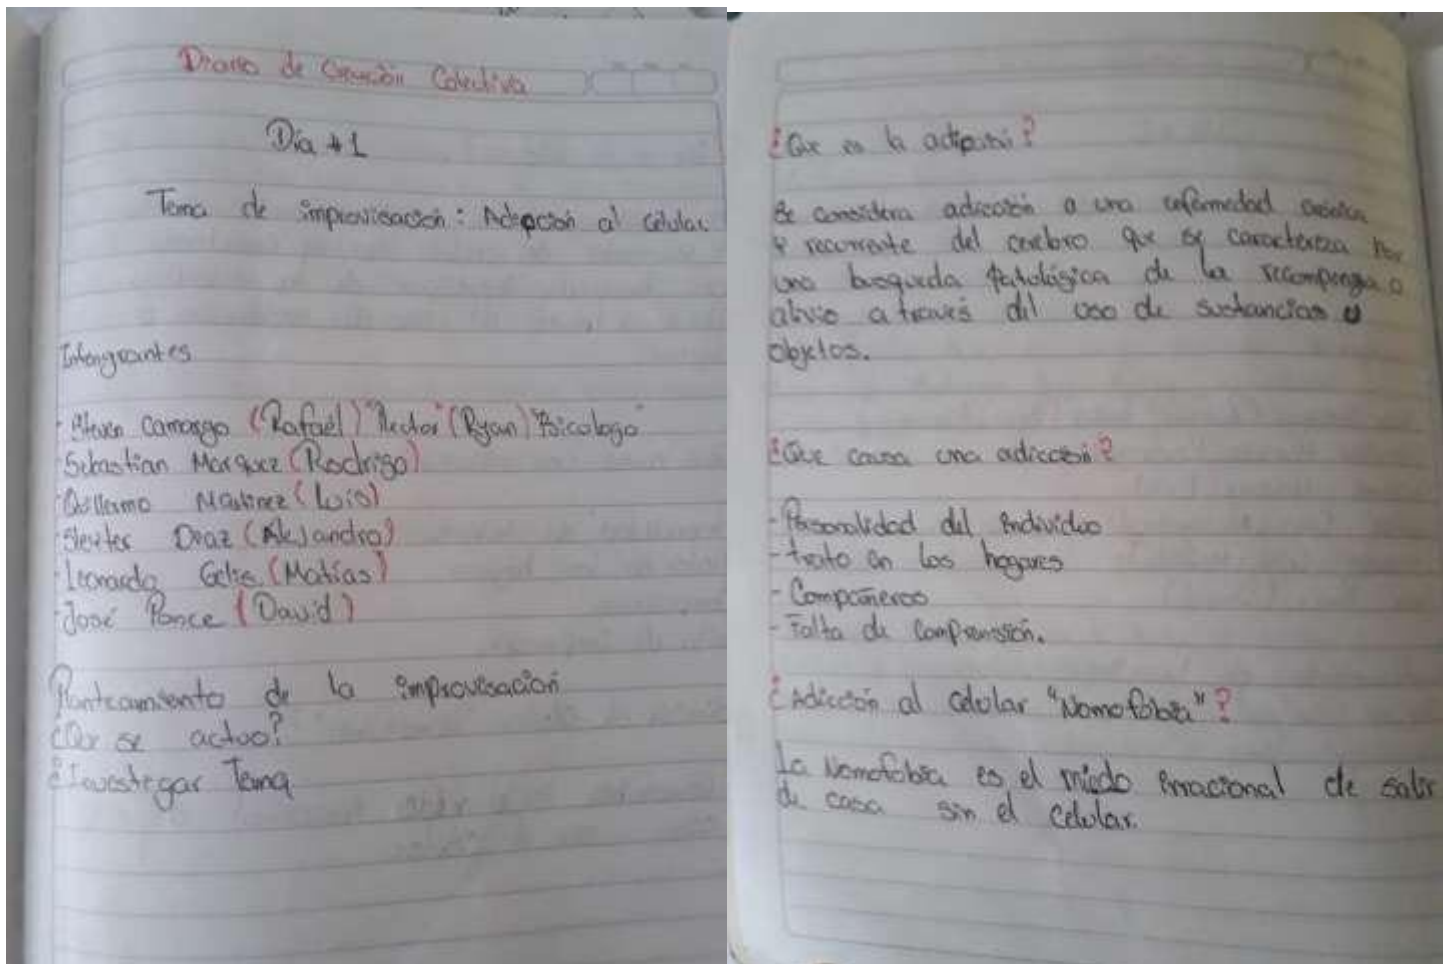 Diario de Creación Colectiva
Día #1
Tema de improvisación: Adipcion al célular
Intengrantes
- Steven Camargo (Rafael) "Rector" (Ryan) "Psicologo"
- Sebastian Marquez (Rodrigo)
- Guillermo Martinez (Luis)
- Díaz (Alejandro)
- Leonardo Gelis (Matías)
- José Ponce (David)
Planteamiento de la improvisación
¿Que se actuo?
¿Investigar Tema
¿Que es la adipción?
Se considera adicción a una enfermedad crónica
y recurrente del cerebro que se caracteriza por
una busqueda patológica de la recompensa o
alivio a través del uso de sustancias u
objetos.
¿Que causa una adicción?
- Personalidad del individuo
- trato en los hogares
- Compañeros
- Falta de Comprensión.
¿Adicción al celular "Nomofobia"?
La Nomofobia es el miedo irracional de salir
de casa sin el celular.